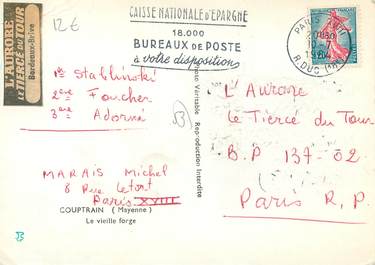 L'AURORE
LE TIERCÉ DU TOUR
Bordeaux-Brive
12€
CAISSE NATIONALE D'EPARGNE
18.000
BUREAUX DE POSTE
à votre disposition
PARIS XVIII
10-7
R. DUC (18e)
1er Stablinski
2eme Foucher
3eme Adorni
53
MARAIS Michel
8 Rue Letort
Paris XVIII
COUPTRAIN (Mayenne)
Le vieille forge
53
Photo Véritable Reproduction Interdite
L'Aurore
Le Tiercé du Tour
B.P 137-02
Paris R.P.